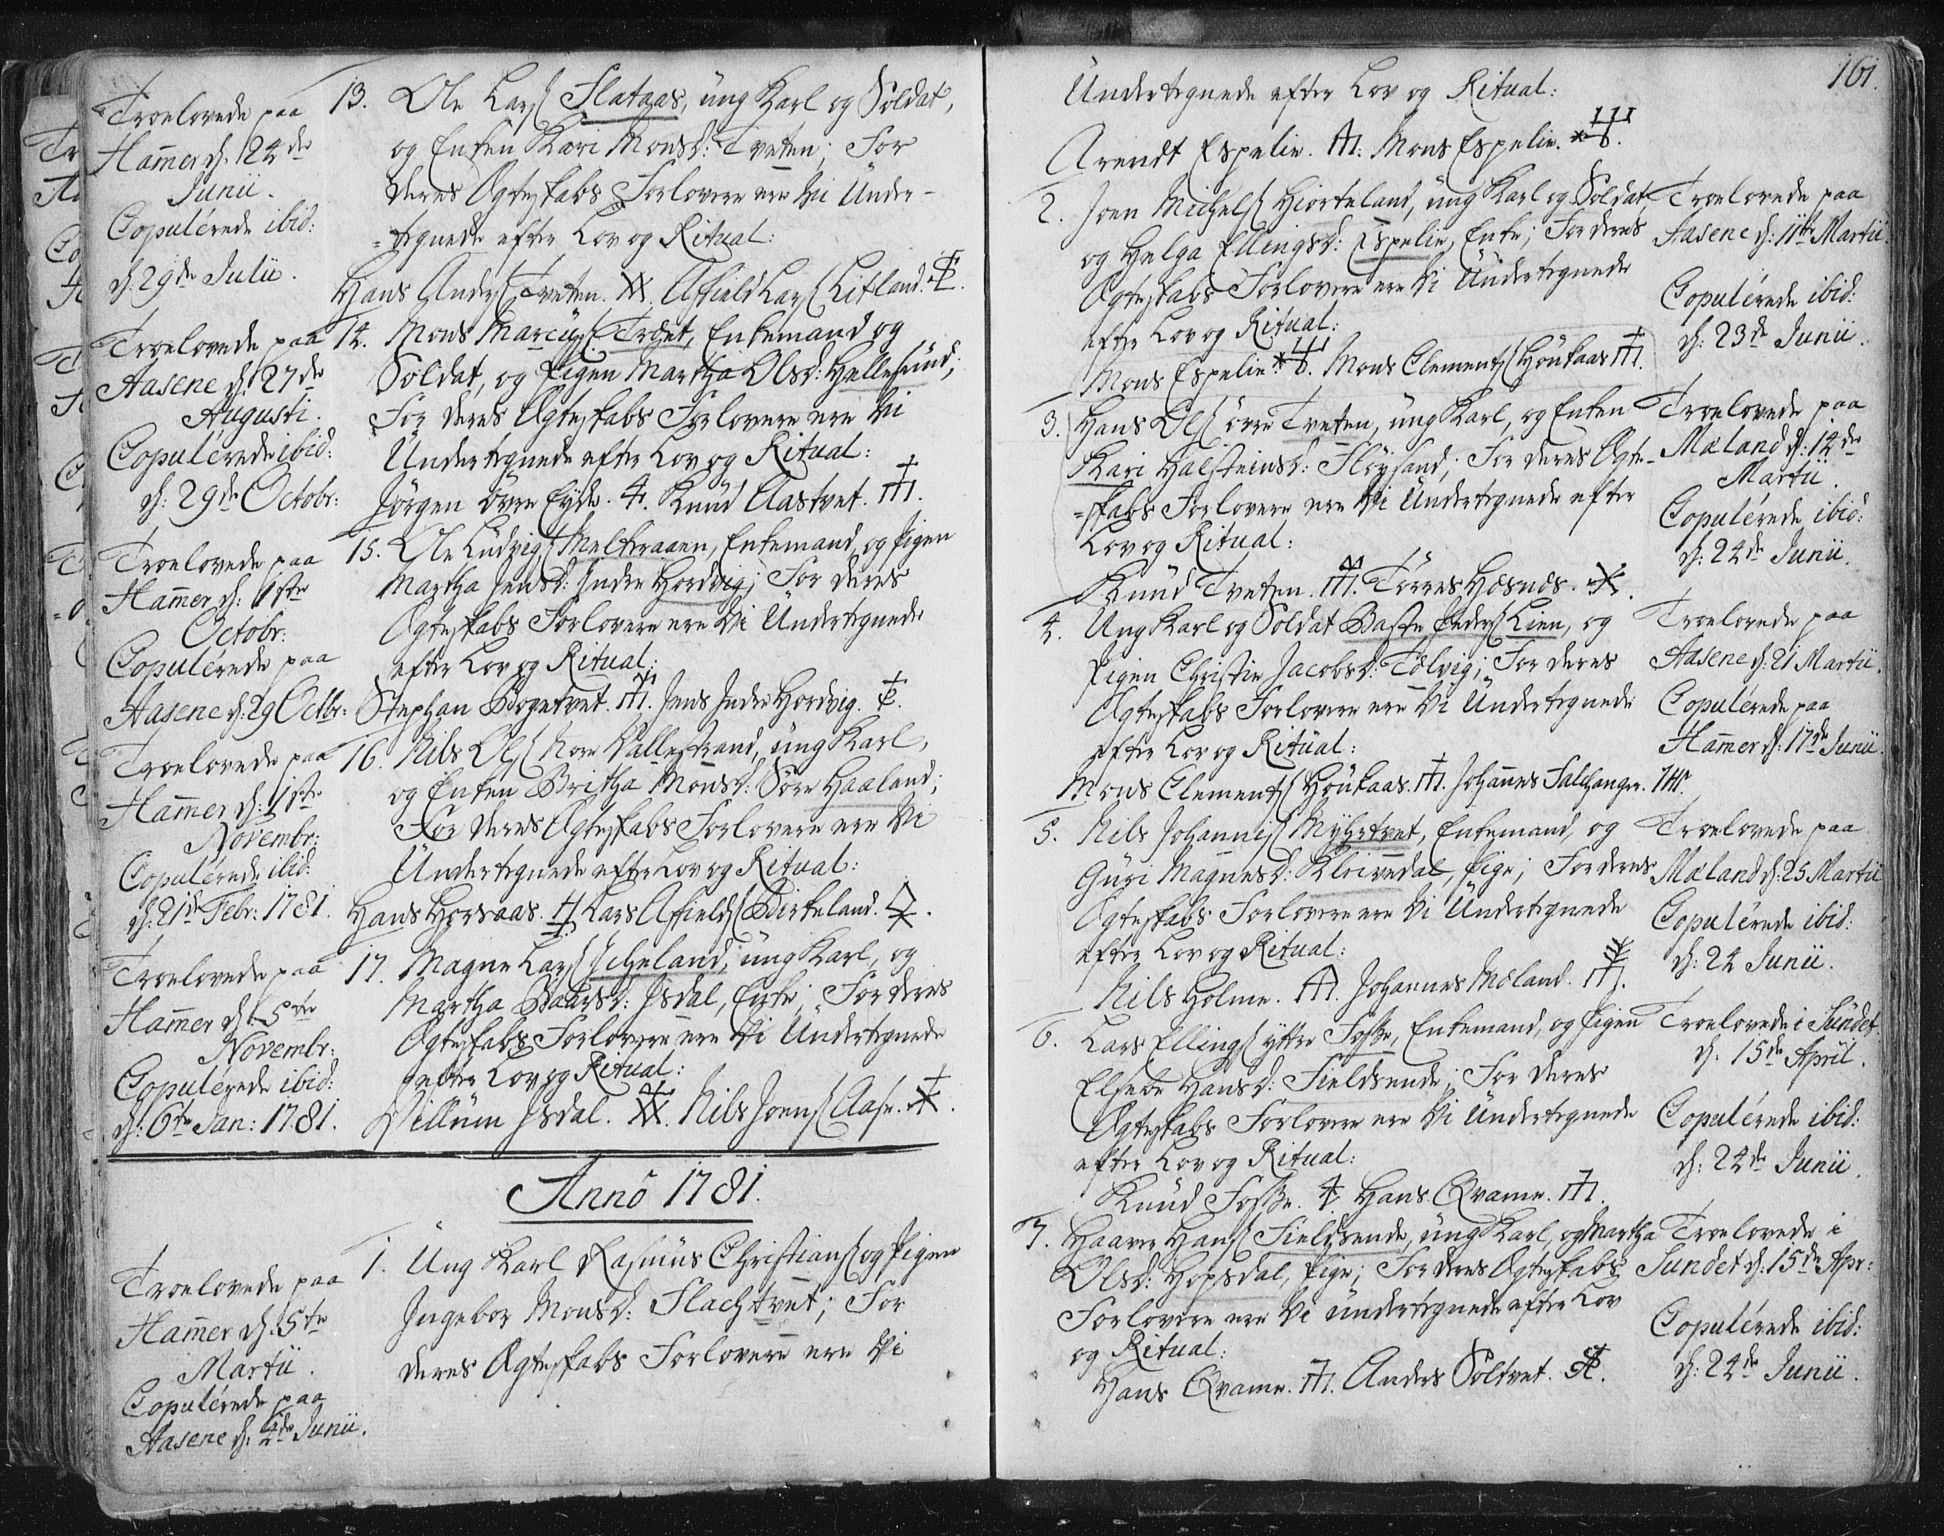 Troelovede paa
Hamer d. 24de
Junii.
Copulérede ibid:
d. 29de Julii.
13. Ole Lars Flataas, ung Karl og Soldat,
og Enken Kari Monsd: Tveten; For
deres Ægteskabs Forlovere ere Vi Under-
=tegnede efter Lov og Ritual:
Hans Anders Tveten. Affield Lars Litland.
Troelovede paa
Aasene d. 27de
Augusti.
Copulérede ibid:
d: 29de Octobr:
14. Mons Marcus Træet, Enkemand og
Soldat, og Pigen Martha Olsd: Hellesund;
For deres Ægteskabs Forlovere ere Vi
Undertegnede efter Lov og Ritual:
Jörgen övre Eyde. Knud Aastvet.
Troelovede paa
Hamer d: 1ste
Octobr:
Copulérede paa
Aasene d. 29 Octbr:
15. Ole Ludvigs Melkeraaen, Enkemand, og Pigen
Martha Jensd: Indre Hordvig; For deres
Ægteskabs Forlovere ere Vi Undertegnede
efter Lov og Ritual:
Stephan Bogetvet. Jens Indre Hordvig.
Troelovede paa
Hamer d: 1ste
Novembr:
Copulérede ibid:
d: 21de Febr: 1781.
16. Nils Ols Nore Vallestrand, ung Karl,
og Enken Britha Monsd: Söre Haaland;
For deres Ægteskabs Forlovere ere Vi
Undertegnede efter Lov og Ritual:
Hans Horsaas. Lars Affields Birkeland.
Troelovede paa
Hamer d. 5te
Novembr:
Copulérede ibid:
d: 6te Jan: 1781.
17. Magne Lars Icheland, ung Karl, og
Martha Baarsd: Isdal, Enke; For deres
Ægteskabs Forlovere ere Vi Undertegnede
efter Lov og Ritual:
Villum Isdal. Nils Joens Aase.
Anno 1781.
Troelovede paa
Hamer d: 5te
Martii.
Copulérede paa
Aasene d: 4de Junii.
1. Ung Karl Rasmus Christians og Pigen
Ingebor Monsd: Flachtvet; For
deres Ægteskabs Forlovere ere Vi
161.
Undertegnede efter Lov og Ritual:
Arendt Espelie. Mons Espelie.
2. Joen Michels Hiorteland, ung Karl og Soldat,
og Helga Ellingsd: Espelie, Enke; For deres
Ægteskabs Forlovere ere Vi Undertegnede
efter Lov og Ritual:
Mons Espelie. Mons Clements Houkaas
Troelovede paa
Aasene d: 11te Martii.
Copulérede ibid:
d: 23de Junii.
3. Hans Ols övre Tveten, ung Karl, og Enken
Kari Halsteinsd: Flöysand; For deres Ægte-
=skabs Forlovere ere Vi Undertegnede efter
Lov og Ritual:
Knud Tveten. Törres Hosnæs.
Troelovede paa
Mæland d: 14de
Martii.
Copulérede ibid:
d: 24de Junii.
4. Ung Karl og Soldat Basse Peders Lien, og
Pigen Christie Jacobsd: Tolvig; For deres
Ægteskabs Forlovere ere Vi Undertegnede
efter Lov og Ritual:
Mons Clements Houkaas. Johannes Salhanger.
Troelovede paa
Aasene d: 21 Martii.
Copulérede paa
Hamer d: 17de Junii.
5. Nils Johannis Myhrtvet, Enkemand, og
Guri Magnesd: Kleivedal, Pige; For deres
Ægteskabs Forlovere ere Vi Undertegnede
efter Lov og Ritual:
Nils Holme. Johannes Mæland.
Troelovede paa
Mæland d: 25 Martii
Copulérede ibid:
d: 24 Junii.
6. Lars Ellings yttre Fosse, Enkemand, og Pigen
Elsebe Hansd: Fieldsende; For deres
Ægteskabs Forlovere ere Vi Undertegnede
efter Lov og Ritual:
Knud Fosse. Hans Qvame.
Troelovede i Sundet
d: 15de April.
Copulérede ibid:
d: 24de Junii.
7. Haaver Hans Fieldsende, ung Karl, og Martha
Olsd: Hopsdal, Pige; For deres Ægteskabs
Forlovere ere Vi undertegnede efter Lov
og Ritual:
Hans Qvame. Anders Soltvet.
Troelovede i
Sundet d: 15de Apr:
Copulérede ibid:
d: 24de Junii.